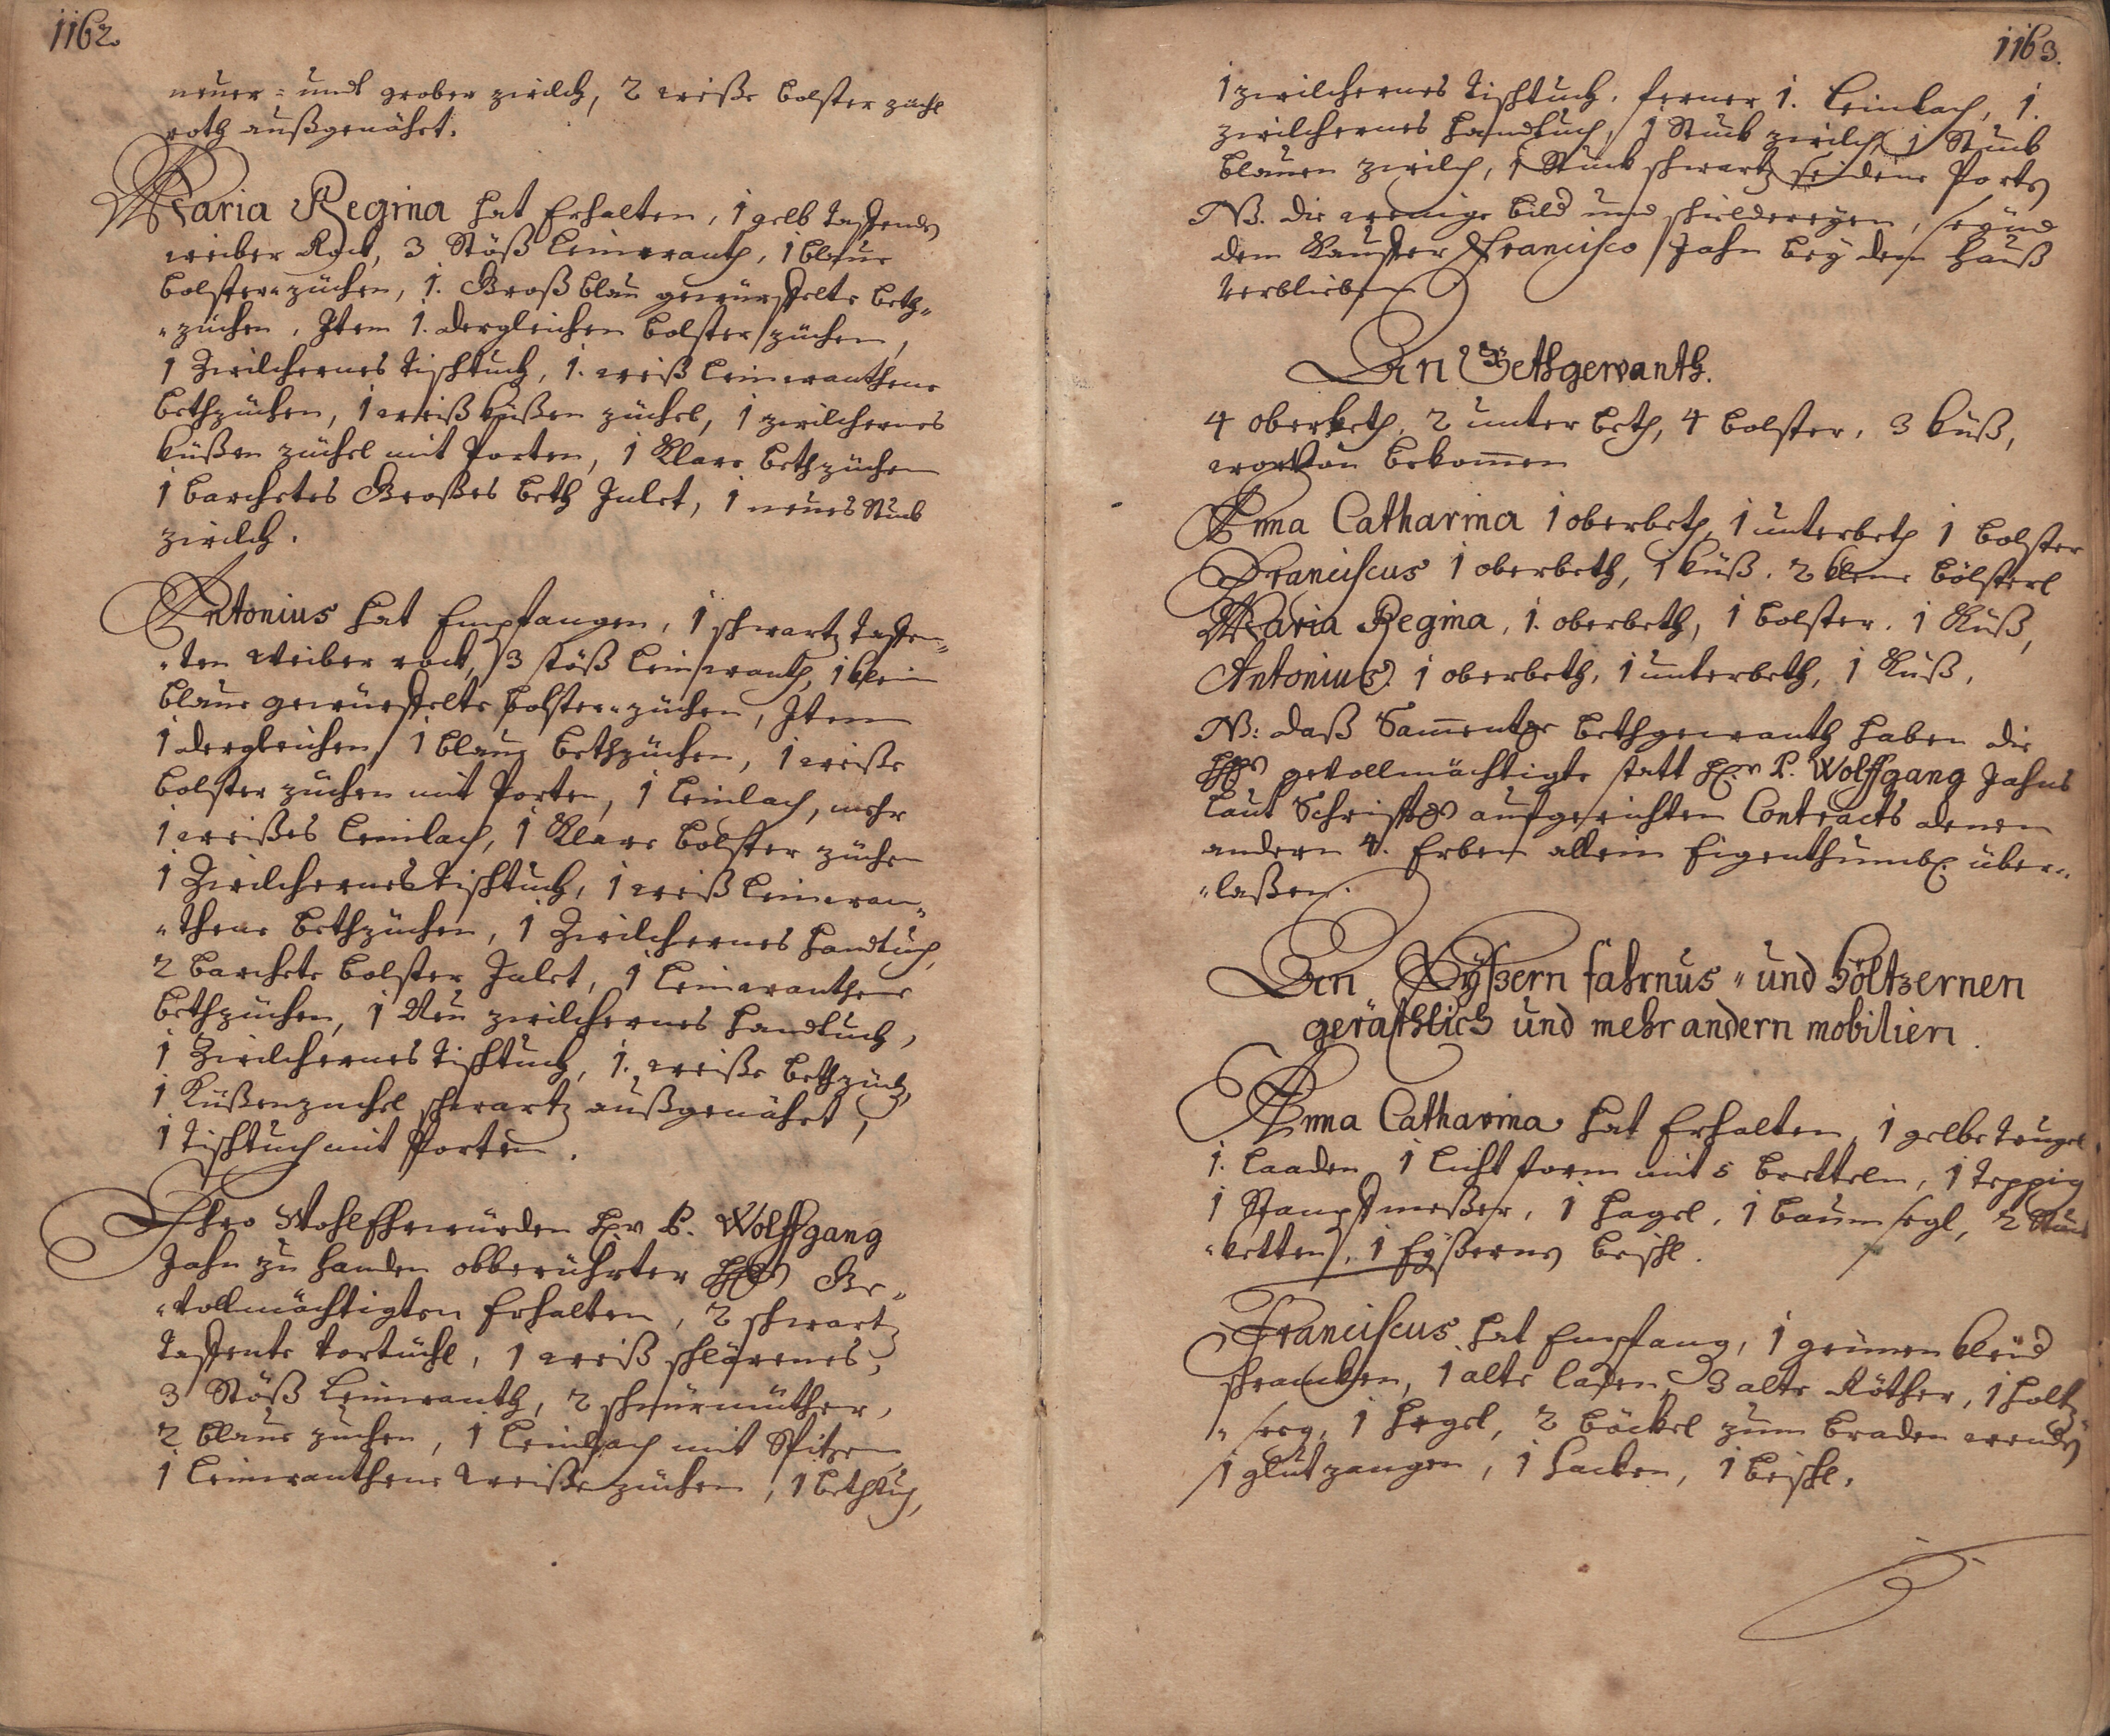 1162.
neuer- undt grober zwilch, 2 weiße bolster züchl
roth außgenähet.
Maria Regina hat Erhalten, 1 gelb taffenden
weiber Rock, 3 Stöß leinwanth, 1 blaue
bolster züchen, 1. Groß blau gewürffelte beth-
züchen, Item 1. dergleichen bolster züchen,
1 Zwilchernes tischtuch, 1. weiß leinwanthene
bethzüchen, 1 weiß küßen züchel, 1 zwilchernes
küßen züchel mit Porten, 1 Klare bethzüchen
1 barchetes Großes beth Inlet, 1 neues Stuck
zwilch.
Antonius hat Empfangen, 1 schwartz taffen-
ten weiber rock, 3 stöß leinwanth, 1 klein
blaue gewürffelte bolster züchen, Item
1 dergleichen, 1 blaue bethzüchen, 1 weiße
bolster züchen mit Porten, 1 leinlach, mehr
1 weißes leinlach, 1 Klare bolster züchen
1 Zwilchernes tischtuch, 1 weiß leinwan-
thene bethzüchen, 1 Zwilchernes handtuch,
2 barchete bolster Inlet, 1 leinwanthene
bethzüchen, 1 Neu zwilchernes handtuch,
1 Zwilchernes tischtuch, 1. weiße bethzüch,
1 Küßenzüchel schwartz außgenähet,
1 tischtuch mit Porten.
Ihro WohlEhrwürden hr. P. Wolffgang
Jahn zu handen obberührter Ge-
vollmächtigten Erhalten, 2 schwartz
taffente vortüchl, 1 weiß
3 Stöß leinwanth, 2 schnürmüther,
2 blaue züchen, 1 leinlach mit Spitzen
1 leinwanthene weiße züchen, 1 bethtuch,
1163.
1 zwilchernes tischtuch. ferner 1. leinlach, 1.
zwilchernes handtuch, 1 Stuck zwilch, 1 Stuck
blauen zwilch, 1 Stuck schwartz seidene Porten
NB. die wenige bild und schildereyen, seynd
dem Kauffer Francisco Jahn bey dem hauß
verblieben
An Bethgewanth.
4 oberbeth, 2 unter beth, 4 bolster, 3 küß,
worvon bekomen
Anna Catharina 1 oberbeth, 1 unterbeth 1 bolster
Franciscus 1 oberbeth, 1 küß. 2 kleine bölsterl
Maria Regina, 1. oberbeth, 1 bolster. 1 Küß,
Antonius. 1 oberbeth, 1 unterbeth, 1 Küß,
NB: daß Samentliche bethgewanth haben die
gevollmächtigte statt hr. P. Wolffgang Jahns
laut Schrifftlich aufgerichten Contracts denen
andern 4. Erben allein Eigenthumbl. über-
laßen.
An Eyßern fahrnus- und höltzernen
geräthlich und mehr andern mobilien.
Anna Catharina hat Erhalten, 1 gelbe
1. laaden, 1 licht form mit 5 bretteln, 1 teppig
1 Stampffmeßer, 1 1 baum segl, 2 Stuck
ketten, 1 Eyßernes beischl.
Franciscus hat Empfang, 1 grünen kleid
schrancken, 1 alte laden, 3 alte Röther, 1 holtz
seeg, 1 2 böckel zum braden wenden
1 glutzangen, 1 hacken, 1 beischl.